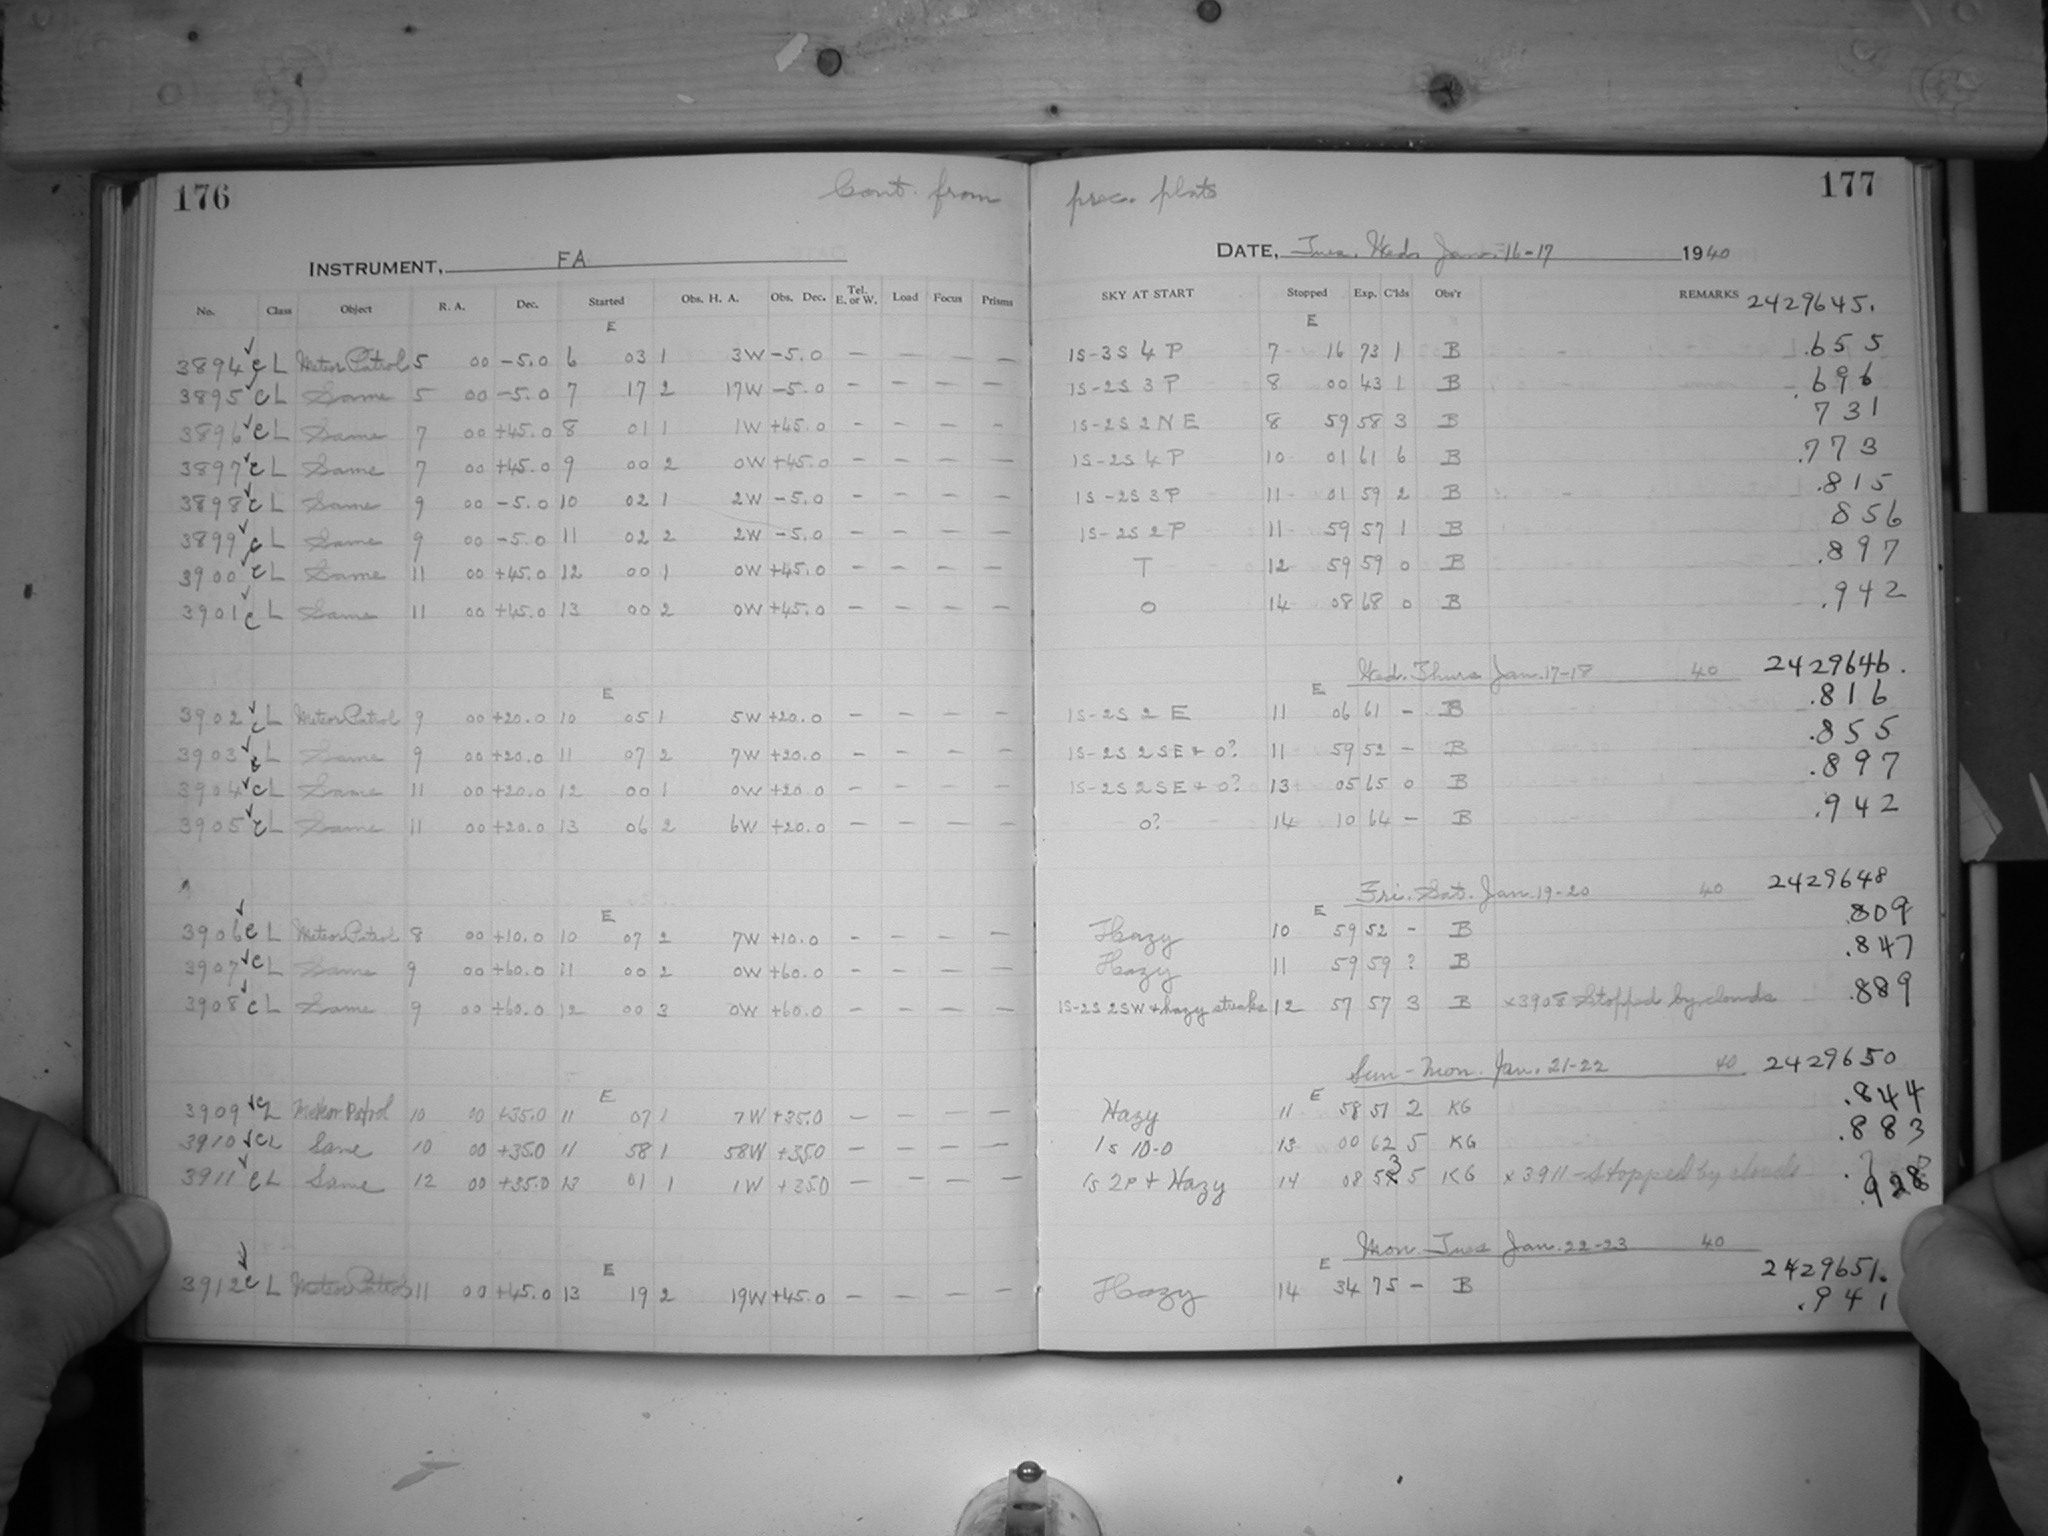 176 Cont. from prec. plate 177
INSTRUMENT, FA DATE, Tues. Wed. Jan. 16-17 1940
No. Class Object R. A. Dec. Started Obs. H. A. Obs. Dec. Tel. E. or W. Load Focus Prisms SKY AT START Stopped Exp. C'lds Obs'r REMARKS 2429645.
E E
3894 ✓ C L Meteor Patrol 5 00 -5.0 6 03 1 3W -5.0 - - - - 1S-3S 4 P 7 16 73 1 B .655
3895 ✓ C L Same 5 00 -5.0 7 17 2 17W -5.0 - - - - 1S-2S 3 P 8 00 43 1 B .696
3896 ✓ C L Same 7 00 +45.0 8 01 1 1W +45.0 - - - - 1S-2S 2 N E 8 59 58 3 B 731
3897 ✓ C L Same 7 00 +45.0 9 00 2 0W +45.0 - - - - 1S-2S 4 P 10 01 61 6 B .773
3898 ✓ C L Same 9 00 -5.0 10 02 1 2W -5.0 - - - - 1S-2S 3 P 11 01 59 2 B .815
3899 ✓ C L Same 9 00 -5.0 11 02 2 2W -5.0 - - - - 1S-2S 2 P 11 59 57 1 B 856
3900 ✓ C L Same 11 00 +45.0 12 00 1 0W +45.0 - - - - T 12 59 59 0 B .897
3901 ✓ C L Same 11 00 +45.0 13 00 2 0W +45.0 - - - - 0 14 08 68 0 B .942
Wed. Thurs Jan. 17-18 40 2429646.
E E
3902 ✓ C L Meteor Patrol 9 00 +20.0 10 05 1 5W +20.0 - - - - 1S-2S 2 E 11 06 61 - B .816
3903 ✓ C L Same 9 00 +20.0 11 07 2 7W +20.0 - - - - 1S-2S 2 SE + 0? 11 59 52 - B .855
3904 ✓ C L Same 11 00 +20.0 12 00 1 0W +20.0 - - - - 1S-2S 2 SE + 0? 13 05 65 0 B .897
3905 ✓ C L Same 11 00 +20.0 13 06 2 6W +20.0 - - - - 0? 14 10 64 - B .942
Fri. Sat. Jan. 19-20 40 2429648
E E
3906 ✓ C L Meteor Patrol 8 00 +10.0 10 07 2 7W +10.0 - - - - Hazy 10 59 52 - B .809
3907 ✓ C L Same 9 00 +60.0 11 00 2 0W +60.0 - - - - Hazy 11 59 59 ? B .847
3908 ✓ C L Same 9 00 +60.0 12 00 3 0W +60.0 - - - - 1S-2S 2SW + hazy streaks 12 57 57 3 B x3908 Stopped by clouds .889
Sun-Mon. Jan. 21-22 40 2429650
E E
3909 ✓ C L Meteor Patrol 10 00 +35.0 11 07 1 7W +35.0 - - - - Hazy 11 58 51 2 KG .844
3910 ✓ C L Same 10 00 +35.0 11 58 1 58W +35.0 - - - - 1s 10-0 13 00 62 5 KG .883
3911 ✓ C L Same 12 00 +35.0 13 01 1 1W +35.0 - - - - 1s 2P + Hazy 14 08 53 5 KG x3911-Stopped by clouds .928
Mon. Tues Jan. 22-23 40
E E 2429651.
3912 ✓ C L Meteor Patrol 11 00 +45.0 13 19 2 19W +45.0 - - - - Hazy 14 34 75 - B .941